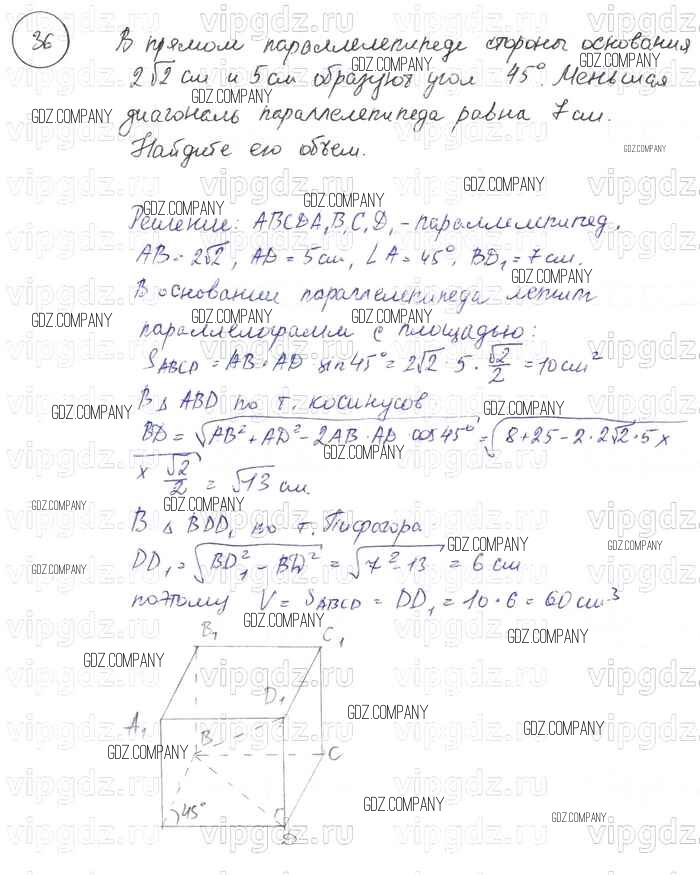 36
В прямом параллелепипеде стороны основания
2√2 см и 5 см образуют угол 45°. Меньшая
диагональ параллелепипеда равна 7 см.
Найдите его объем.
Решение: ABCDA₁B₁C₁D₁ - параллелепипед.
AB = 2√2, AD = 5 см, ∠A = 45°, BD₁ = 7 см.
В основании параллелепипеда лежит
параллелограмм с площадью:
S_ABCD = AB · AD sin 45° = 2√2 · 5 · √2/2 = 10 см²
В △ ABD по т. косинусов
BD = √(AB² + AD² - 2AB · AD cos 45°) = √(8 + 25 - 2 · 2√2 · 5 x
x √2/2) = √13 см.
В △ BDD₁ по т. Пифагора
DD₁ = √(BD₁² - BD²) = √(7² - 13) = 6 см
поэтому V = S_ABCD = DD₁ = 10 · 6 = 60 см³
B₁ C₁
D₁
A₁
B C
45°
D
GDZ.COMPANY
vipgdz.ru